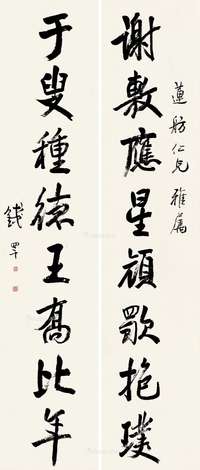 謝敷應星顏歜抱璞
于叟種德王喬比年
蓮舫仁兄雅屬
錢罕